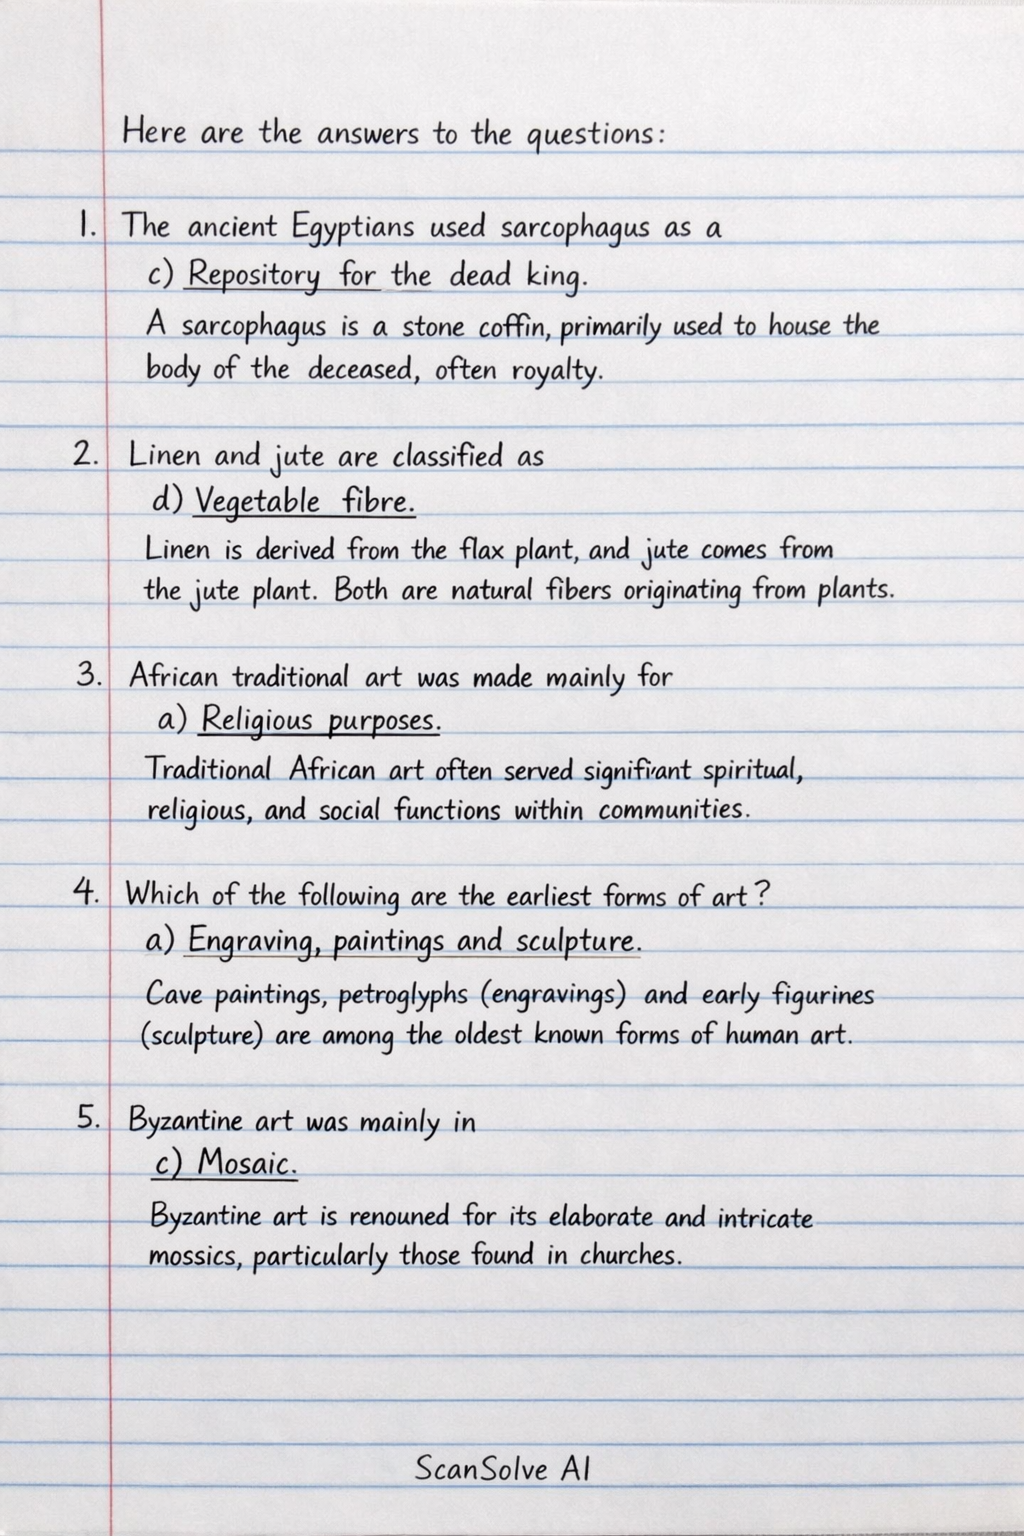 Here are the answers to the questions:
1. The ancient Egyptians used sarcophagus as a
c) Repository for the dead king.
A sarcophagus is a stone coffin, primarily used to house the
body of the deceased, often royalty.
2. Linen and jute are classified as
d) Vegetable fibre.
Linen is derived from the flax plant, and jute comes from
the jute plant. Both are natural fibers originating from plants.
3. African traditional art was made mainly for
a) Religious purposes.
Traditional African art often served significant spiritual,
religious, and social functions within communities.
4. Which of the following are the earliest forms of art?
a) Engraving, paintings and sculpture.
Cave paintings, petroglyphs (engravings) and early figurines
(sculpture) are among the oldest known forms of human art.
5. Byzantine art was mainly in
c) Mosaic.
Byzantine art is renouned for its elaborate and intricate
mossics, particularly those found in churches.
ScanSolve AI